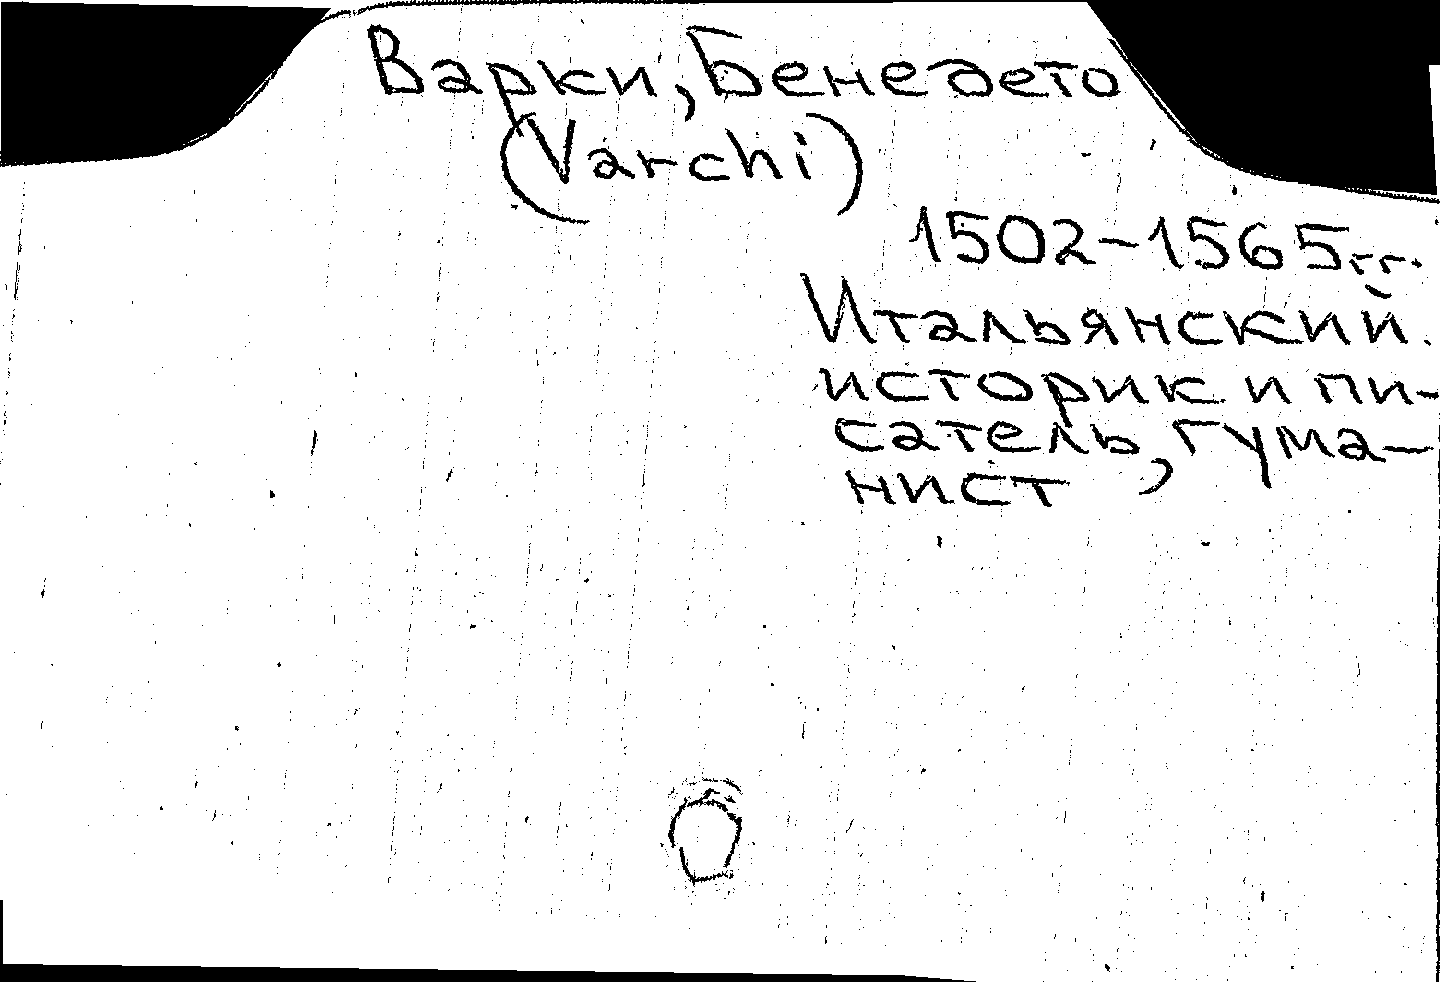 Варки, Бенедето
(Varchi)
1502-1565г.г.
Итальянский
историк и пи-
сатель, гума-
нист